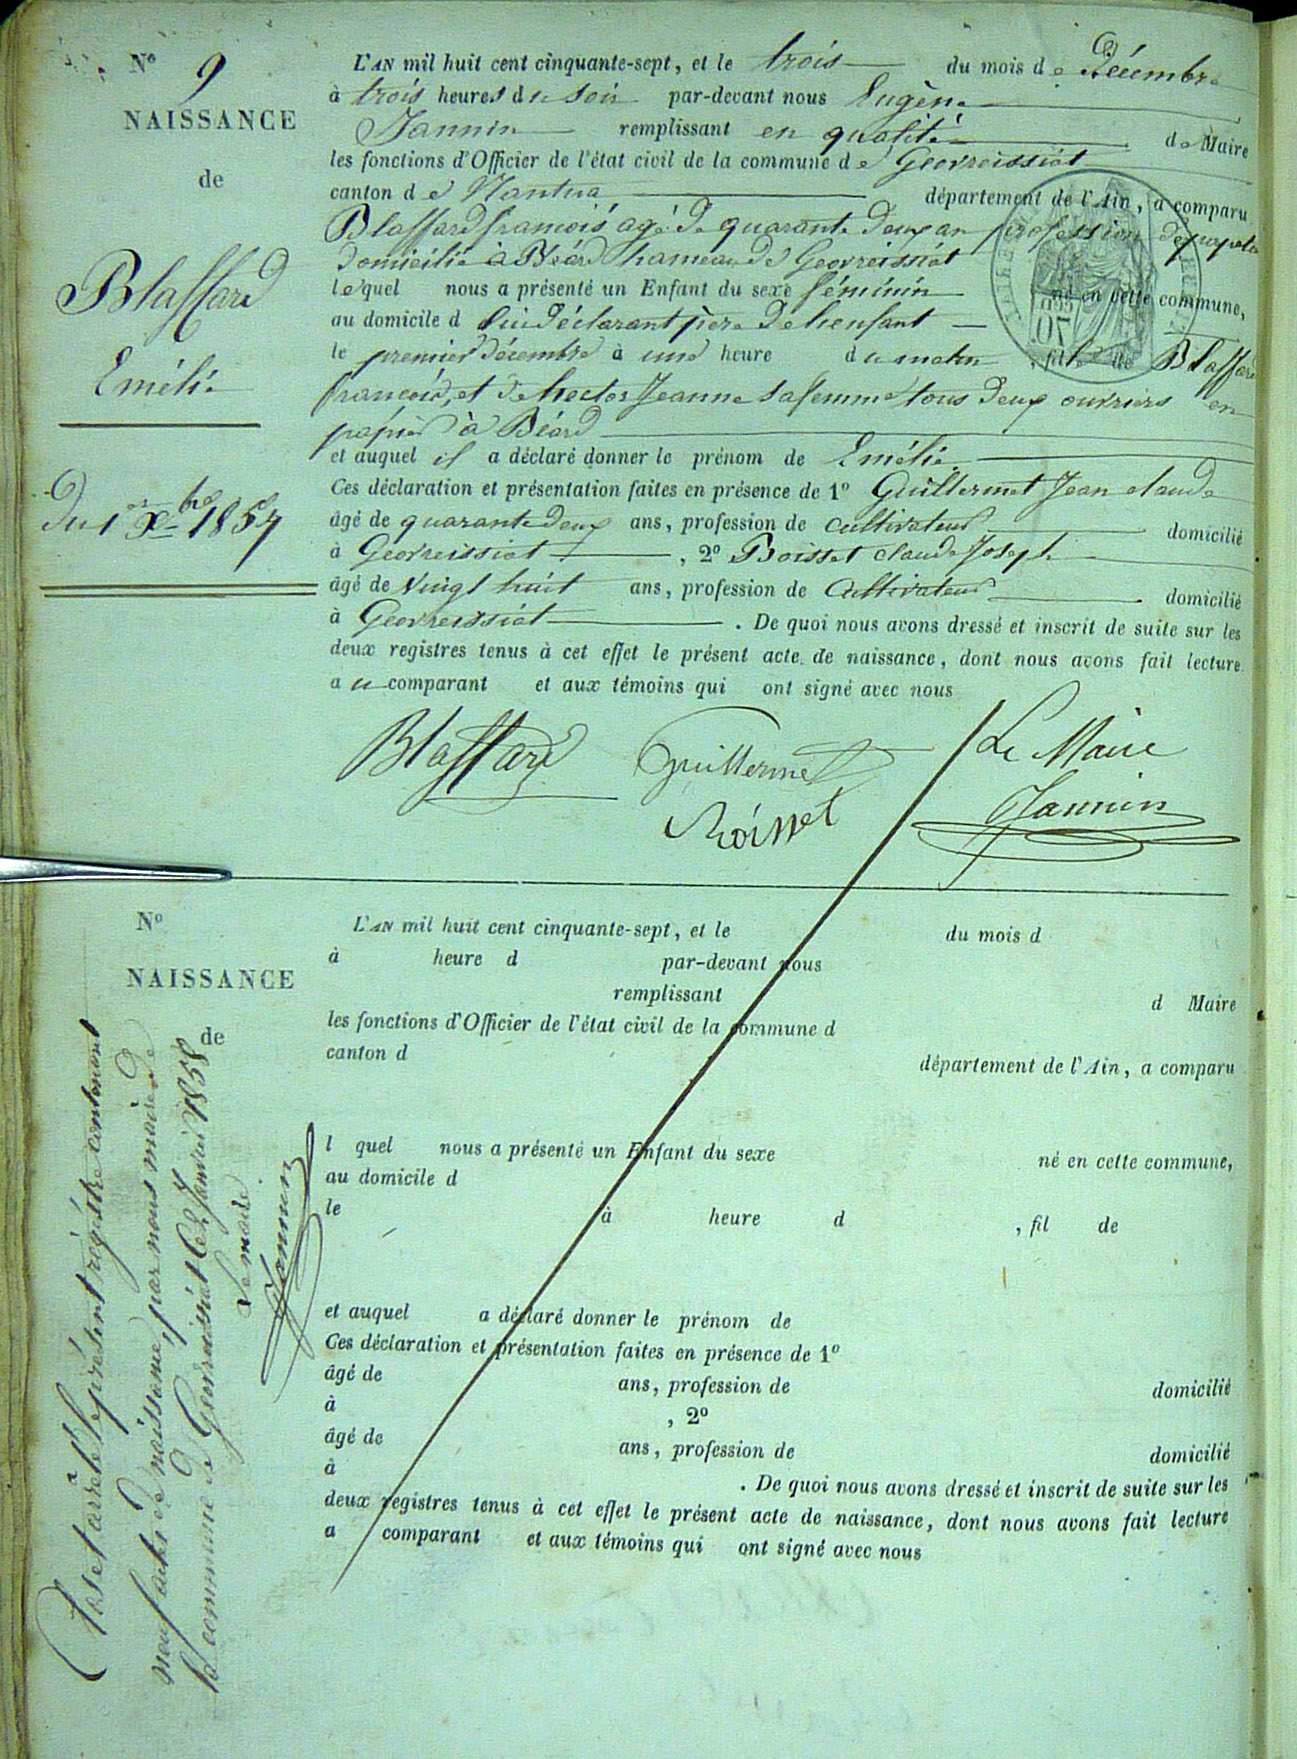 N° 9
NAISSANCE
de
Blaffard
Emélie
du 1er Xbre 1857
L'AN mil huit cent cinquante-sept, et le trois du mois de Décembre
à trois heures du soir par-devant nous Eugène
Jannin remplissant en qualité de Maire
les fonctions d'Officier de l'état civil de la commune de Geovreissiat
canton de Nantua département de l'Ain, a comparu
Blaffard francois agé de quarante deux an profession de
domicilié à Béard hameau de Geovreissiat
lequel nous a présenté un Enfant du sexe féminin né en cette commune,
au domicile d déclarant père de lenfant
le premier décembre à une heure du matin , fille de Blaffard
francois, et de hector Jeanne sa femme tous deux ouvriers en
papier à Béard
et auquel il a déclaré donner le prénom de Emélie
Ces déclaration et présentation faites en présence de 1° Guillermet Jean claude
âgé de quarante deux ans, profession de cultivateur domicilié
à Geovreissiat , 2° Boisset claude Joseph
âgé de vingt huit ans, profession de cultivateur domicilié
à Geovreissiat . De quoi nous avons dressé et inscrit de suite sur les
deux registres tenus à cet effet le présent acte de naissance, dont nous avons fait lecture
au comparant et aux témoins qui ont signé avec nous
Blaffard Guillermet Le Maire
Boisset Jannin
N°
NAISSANCE
de
L'AN mil huit cent cinquante-sept, et le du mois d
à heure d par-devant nous
remplissant d Maire
les fonctions d'Officier de l'état civil de la commune d
canton d département de l'Ain, a comparu
l quel nous a présenté un Enfant du sexe né en cette commune,
au domicile d
le à heure d , fil de
et auquel a déclaré donner le prénom de
Ces déclaration et présentation faites en présence de 1°
âgé de ans, profession de domicilié
à , 2°
âgé de ans, profession de domicilié
à . De quoi nous avons dressé et inscrit de suite sur les
deux registres tenus à cet effet le présent acte de naissance, dont nous avons fait lecture
a comparant et aux témoins qui ont signé avec nous
Clos et arrêté le présent régistre contenant
neuf actes de naissance, par nous maire de
la commune de Geovreissiat le Janvier 1858
Le maire
Jannin